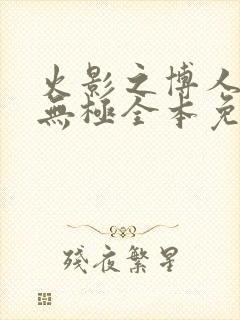 火影之博人
無極全本免
殘夜繁星